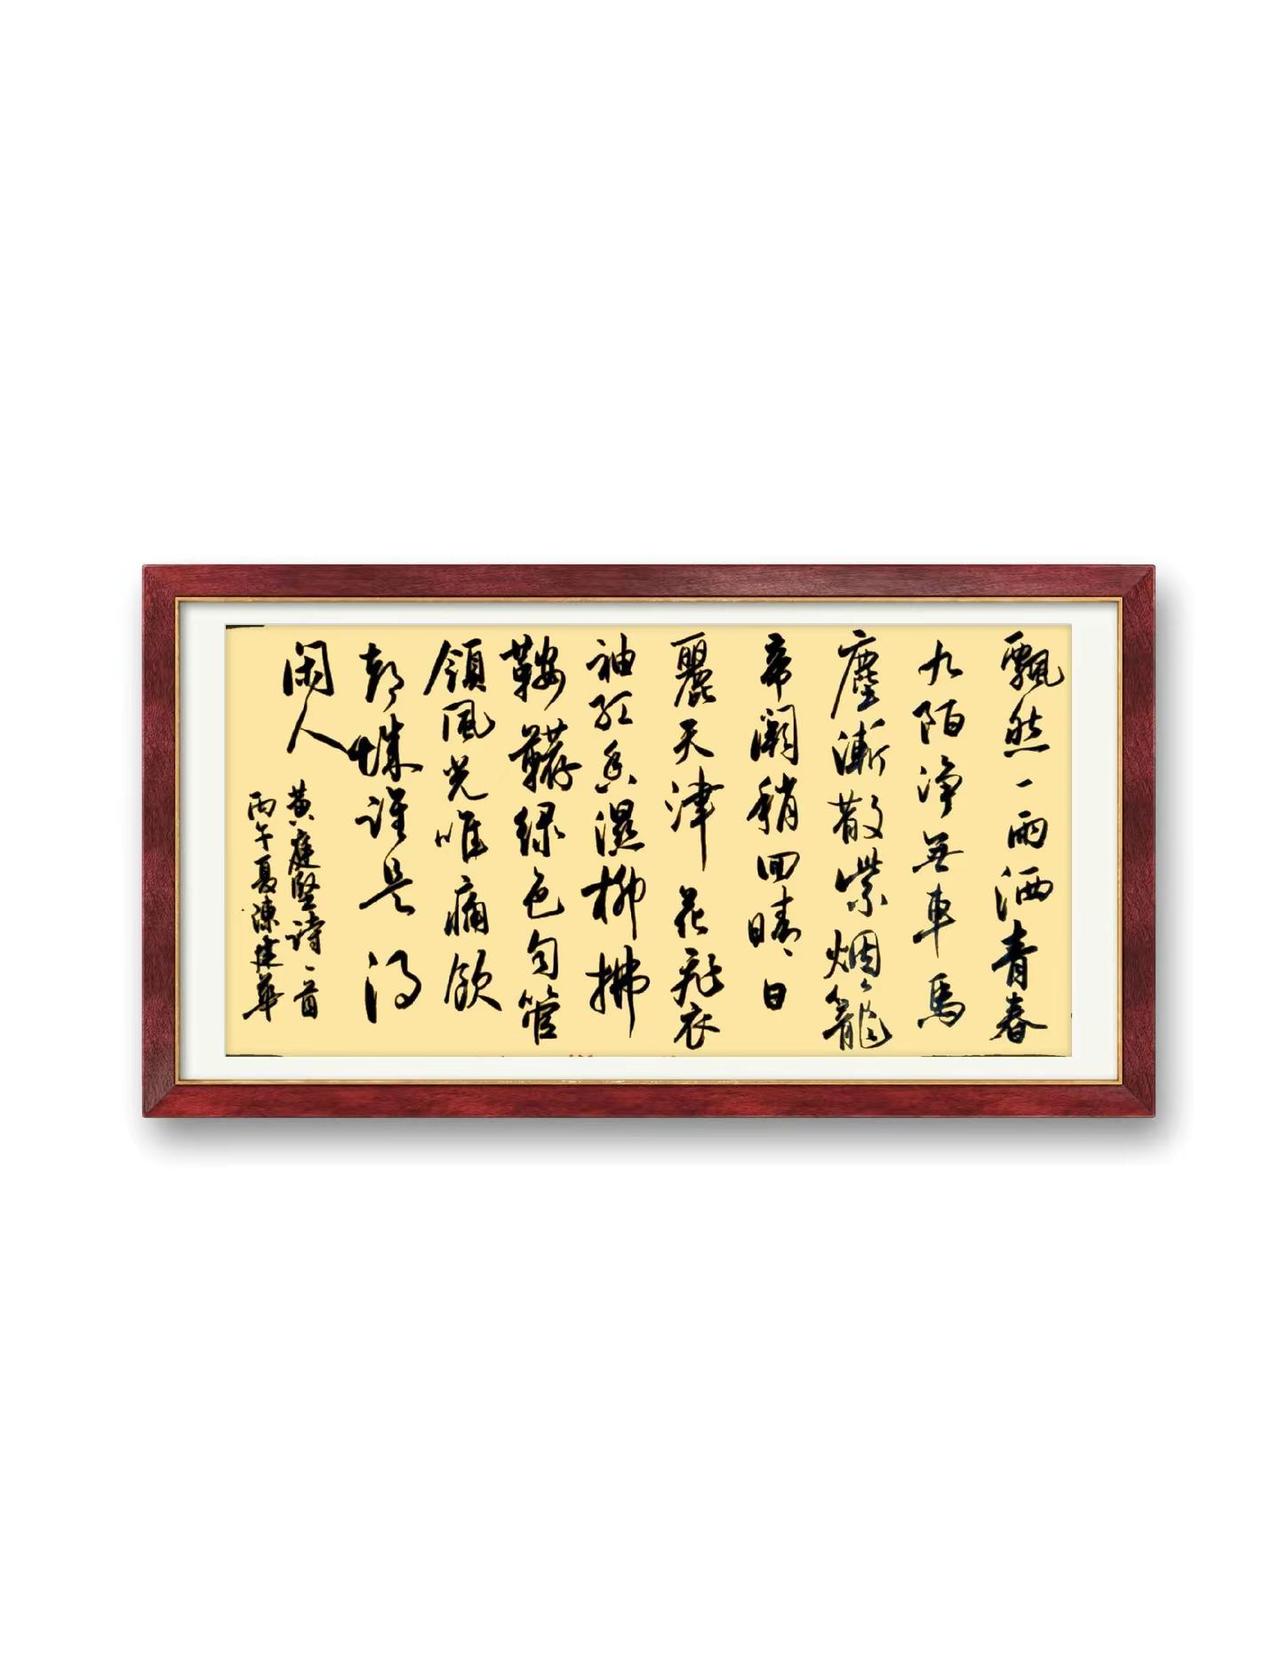 飄然一雨洒青春
九陌净無車馬
塵漸散紫烟籠
帝闕稍回晴日
麗天津花飛衣
袖紅香濕柳拂
鞍韉绿色匀管
領風光唯痛飲
都城誰是得
闲人
黄庭堅詩一首
丙午夏陳建華